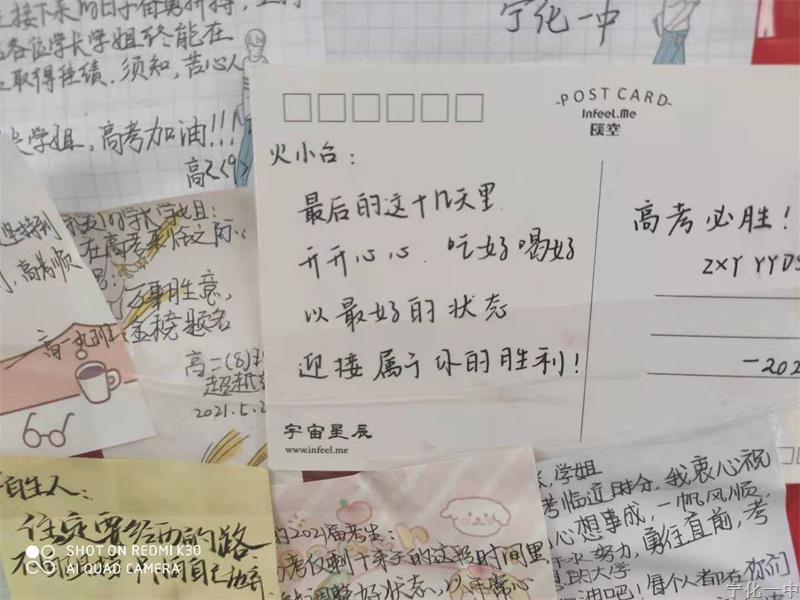 接下来的日子奋勇拼搏
各位学长学姐终能在
取得佳绩.须知,苦心人
学姐,高考加油!!!
高二(9)
宁化一中
-POST CARD-
Infeel.Me
联空
火小台:
最后的这十几天里
开开心心.吃好喝好
以最好的状态
迎接属于你的胜利!
宇宙星辰
www.infeel.me
高考必胜!
ZXY YYDS
-202
坚持到
高考顺
高一九班
的学长学姐:
在高考来临之际
万事胜意,
金榜题名
高二(8)
超越
2021.5.2
生人:
住定要经历的路
SHOT ON REDMI K30
AI QUAD CAMERA
的2021届考生:
考仅剩十来天的这段时间里
调整好状态,以平常心
学姐
考临近时分,我衷心祝
心想事成,一帆风顺,
努力,勇往直前,考
的大学
油吧!每个人都有你们
宁化一中